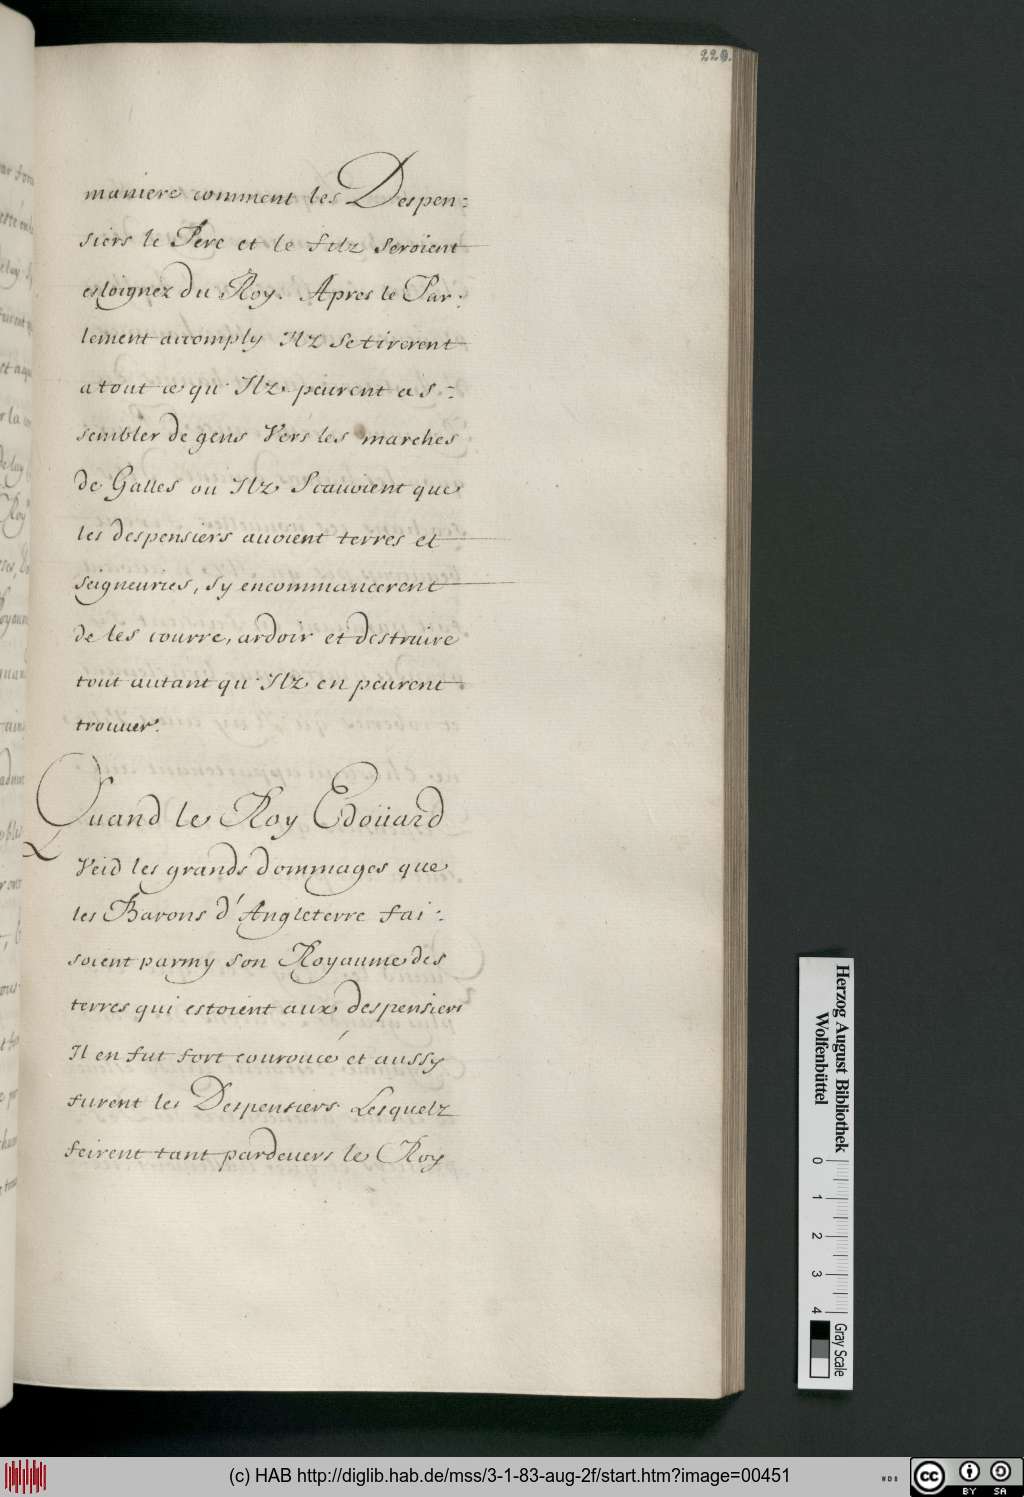 maniere comment les Despen:
siers le Pere et le filz seroient
esloignez du Roy. Apres le Par:
lement accomply Ilz se tirerent
a tout ce qu' Ilz peurent as:
sembler de gens Vers les marches
de Galles ou Ilz Scauoient que
les despensiers auoient terres et
seigneuries, sy encommancerent
de les courre, ardoir et destruire
tout autant qu' Ilz en peurent
trouuer.
Quand le Roy Edoüard
Veid les grands dommages que
les Barons d'Angleterre fai:
soient parmy son Royaume des
terres qui estoient aux despensiers
Il en fut fort couroucé et aussy
furent les Despensiers Lesquelz
feirent tant pardeuers le Roy
Herzog August Bibliothek
Wolfenbüttel
0 1 2 3 4
Gray Scale
(c) HAB http://diglib.hab.de/mss/3-1-83-aug-2f/start.htm?image=00451
cc BY SA